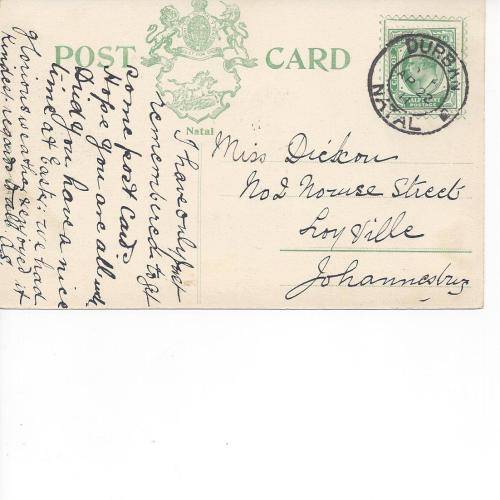 POST CARD
Natal
DURBAN
NATAL
POSTAGE
I have only just
remembered to get
some post cards
Hope you are all well
Did you have a nice
time at Easter we had
glorious weather & enjoyed it
Kindest regards to all
Miss Dickou
No 2 Nourse Street
Loyville
Johannesburg